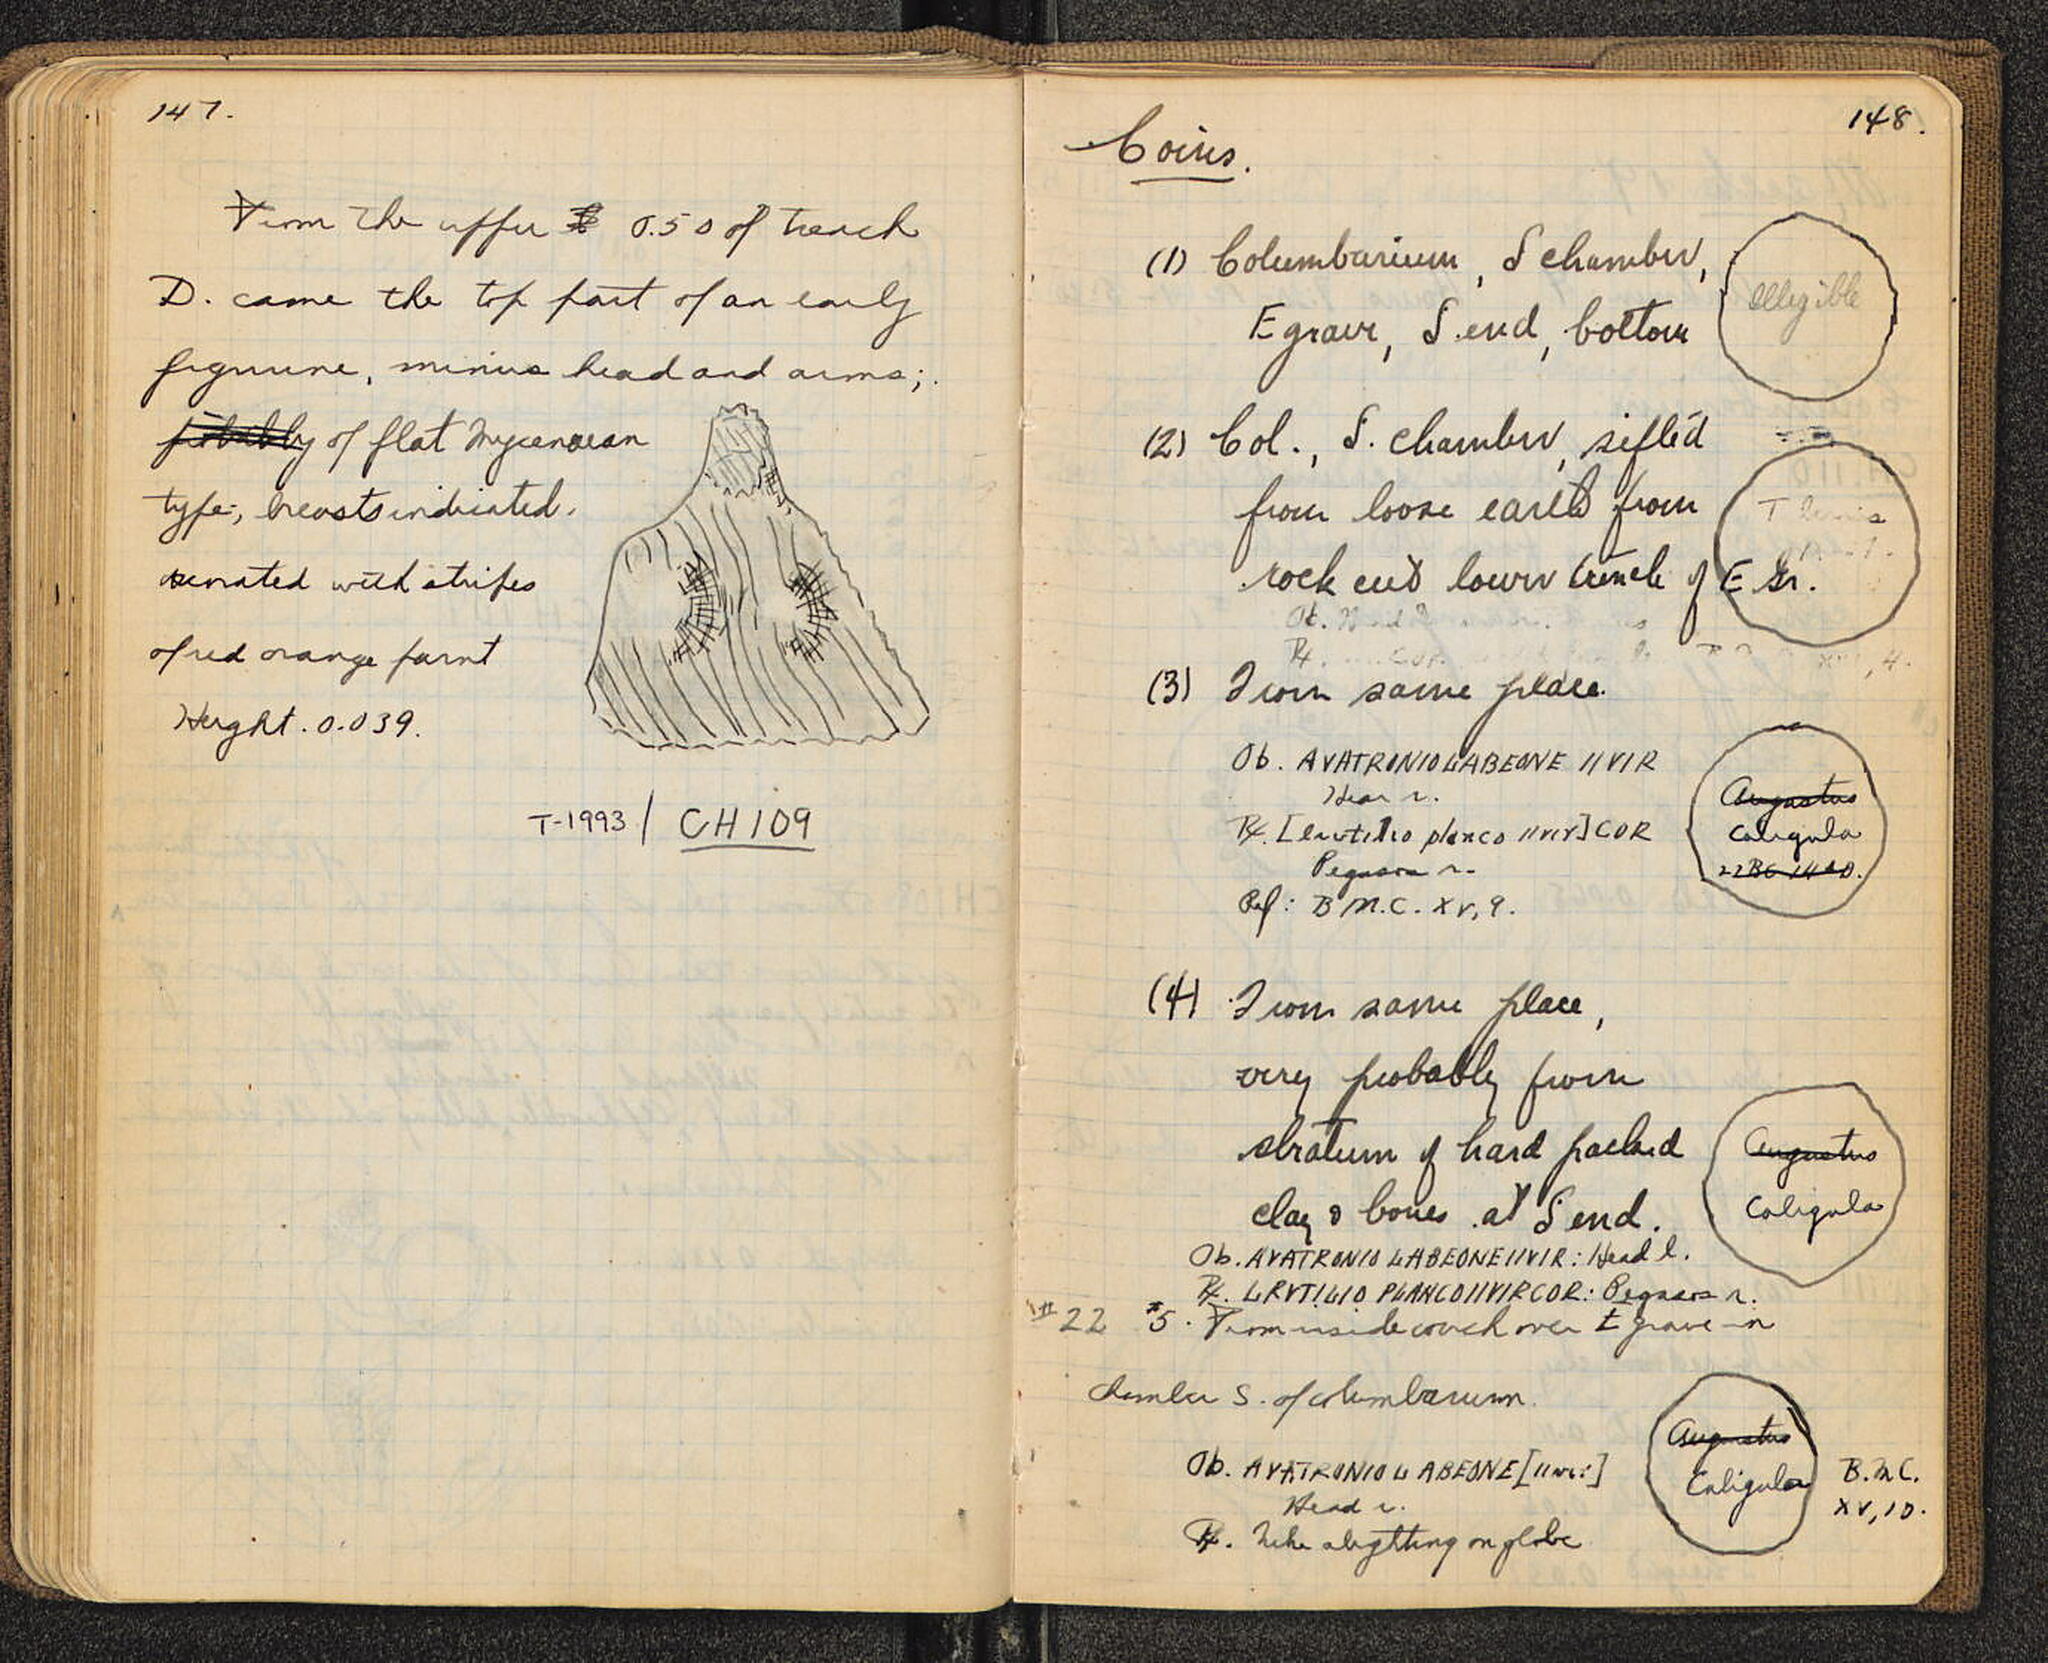 147.
From the upper 0.50 of trench
D. came the top part of an early
figurine, minus head and arms;
probably of flat Mycenaean
type, breasts indicated.
with stripes
of red orange paint
Height. 0.039.
T-1993 / CH109
148.
Coins.
(1) Columbarium, S chamber,
E grave, S. end, bottom
Illegible
(2) Col., S. chamber, sifted
from loose earth from
rock cut lower trench of E Gr.
(3) From same place.
Ob. AVATRONIOLABEONE IIVIR
Head r.
Rx. [lrutilio planco IIvir] COR
Pegasos r.
Ref: B M.C. XV, 9.
Augustus
Caligula
22 BC 14 AD.
(4) From same place,
very probably from
stratum of hard packed
clay & bones at S end.
Ob. AVATRONIO LABEONEIIVIR: Head l.
Rx. LRVTILIO PLANCOIIVIRCOR: Pegasos r.
Augustus
Caligula
#22 #5. From inside couch over E grave in
chamber S. of columbarium.
Ob. AVATRONIOLABEONE [IIvir]
Head r.
Rx. Nike alighting on globe
Augustus
Caligula
B.M.C.
XV, 10.